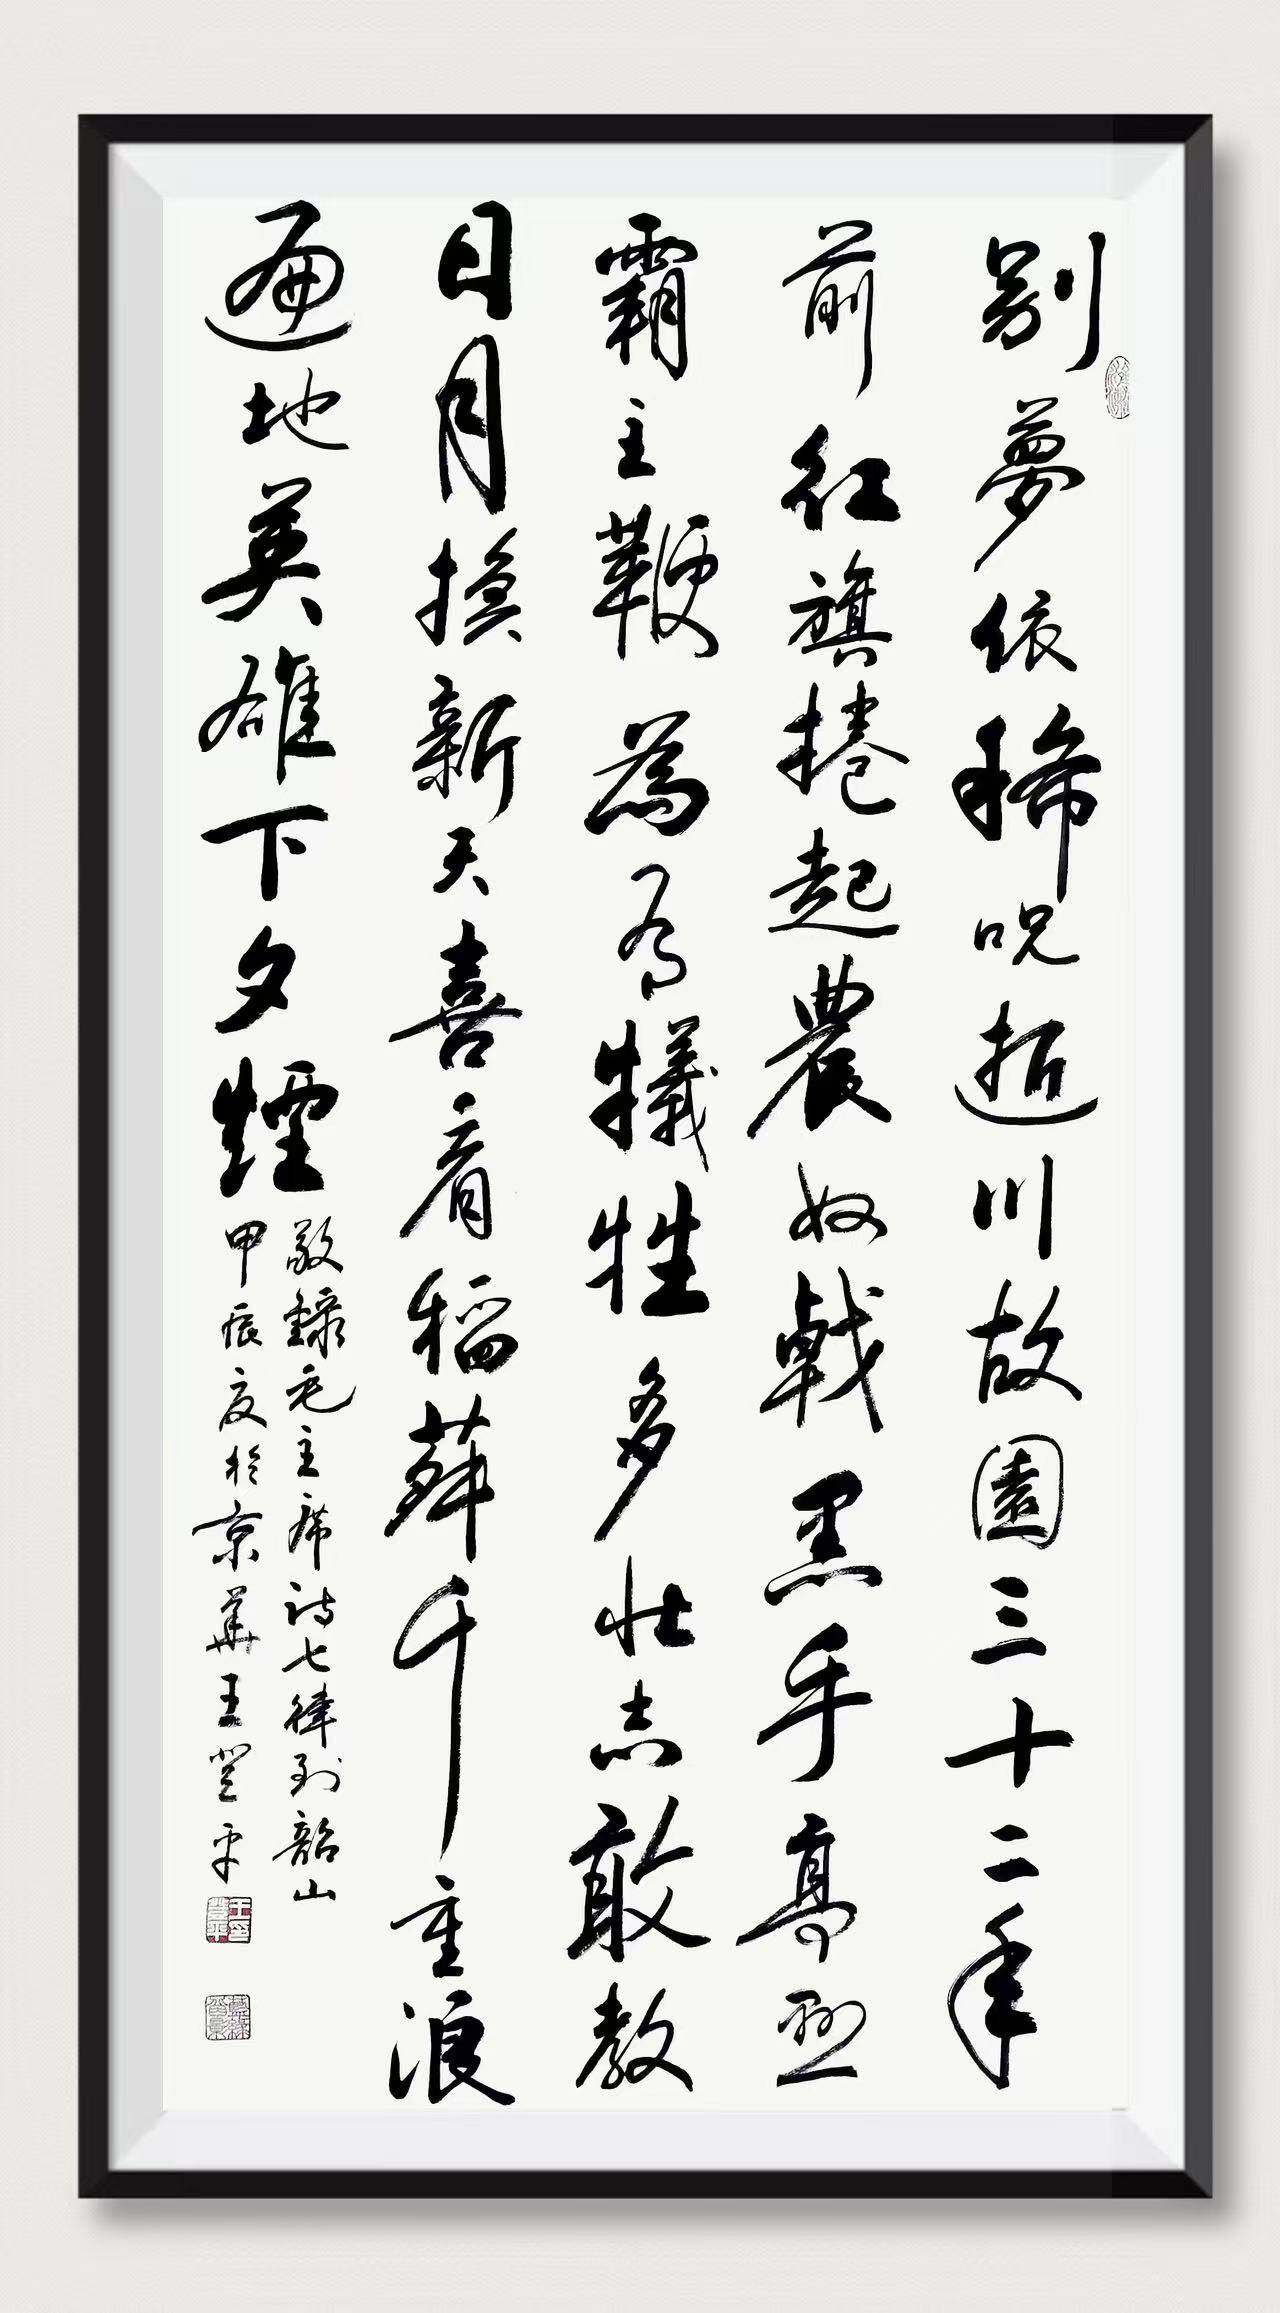 别夢依稀呪逝川故園三十二年
前紅旗捲起農奴戟黑手高懸
霸主鞭為有犧牲多壯志敢教
日月換新天喜看稻菽千重浪
遍地英雄下夕煙
敬錄毛主席詩七律到韶山
甲辰夏於京華王登平